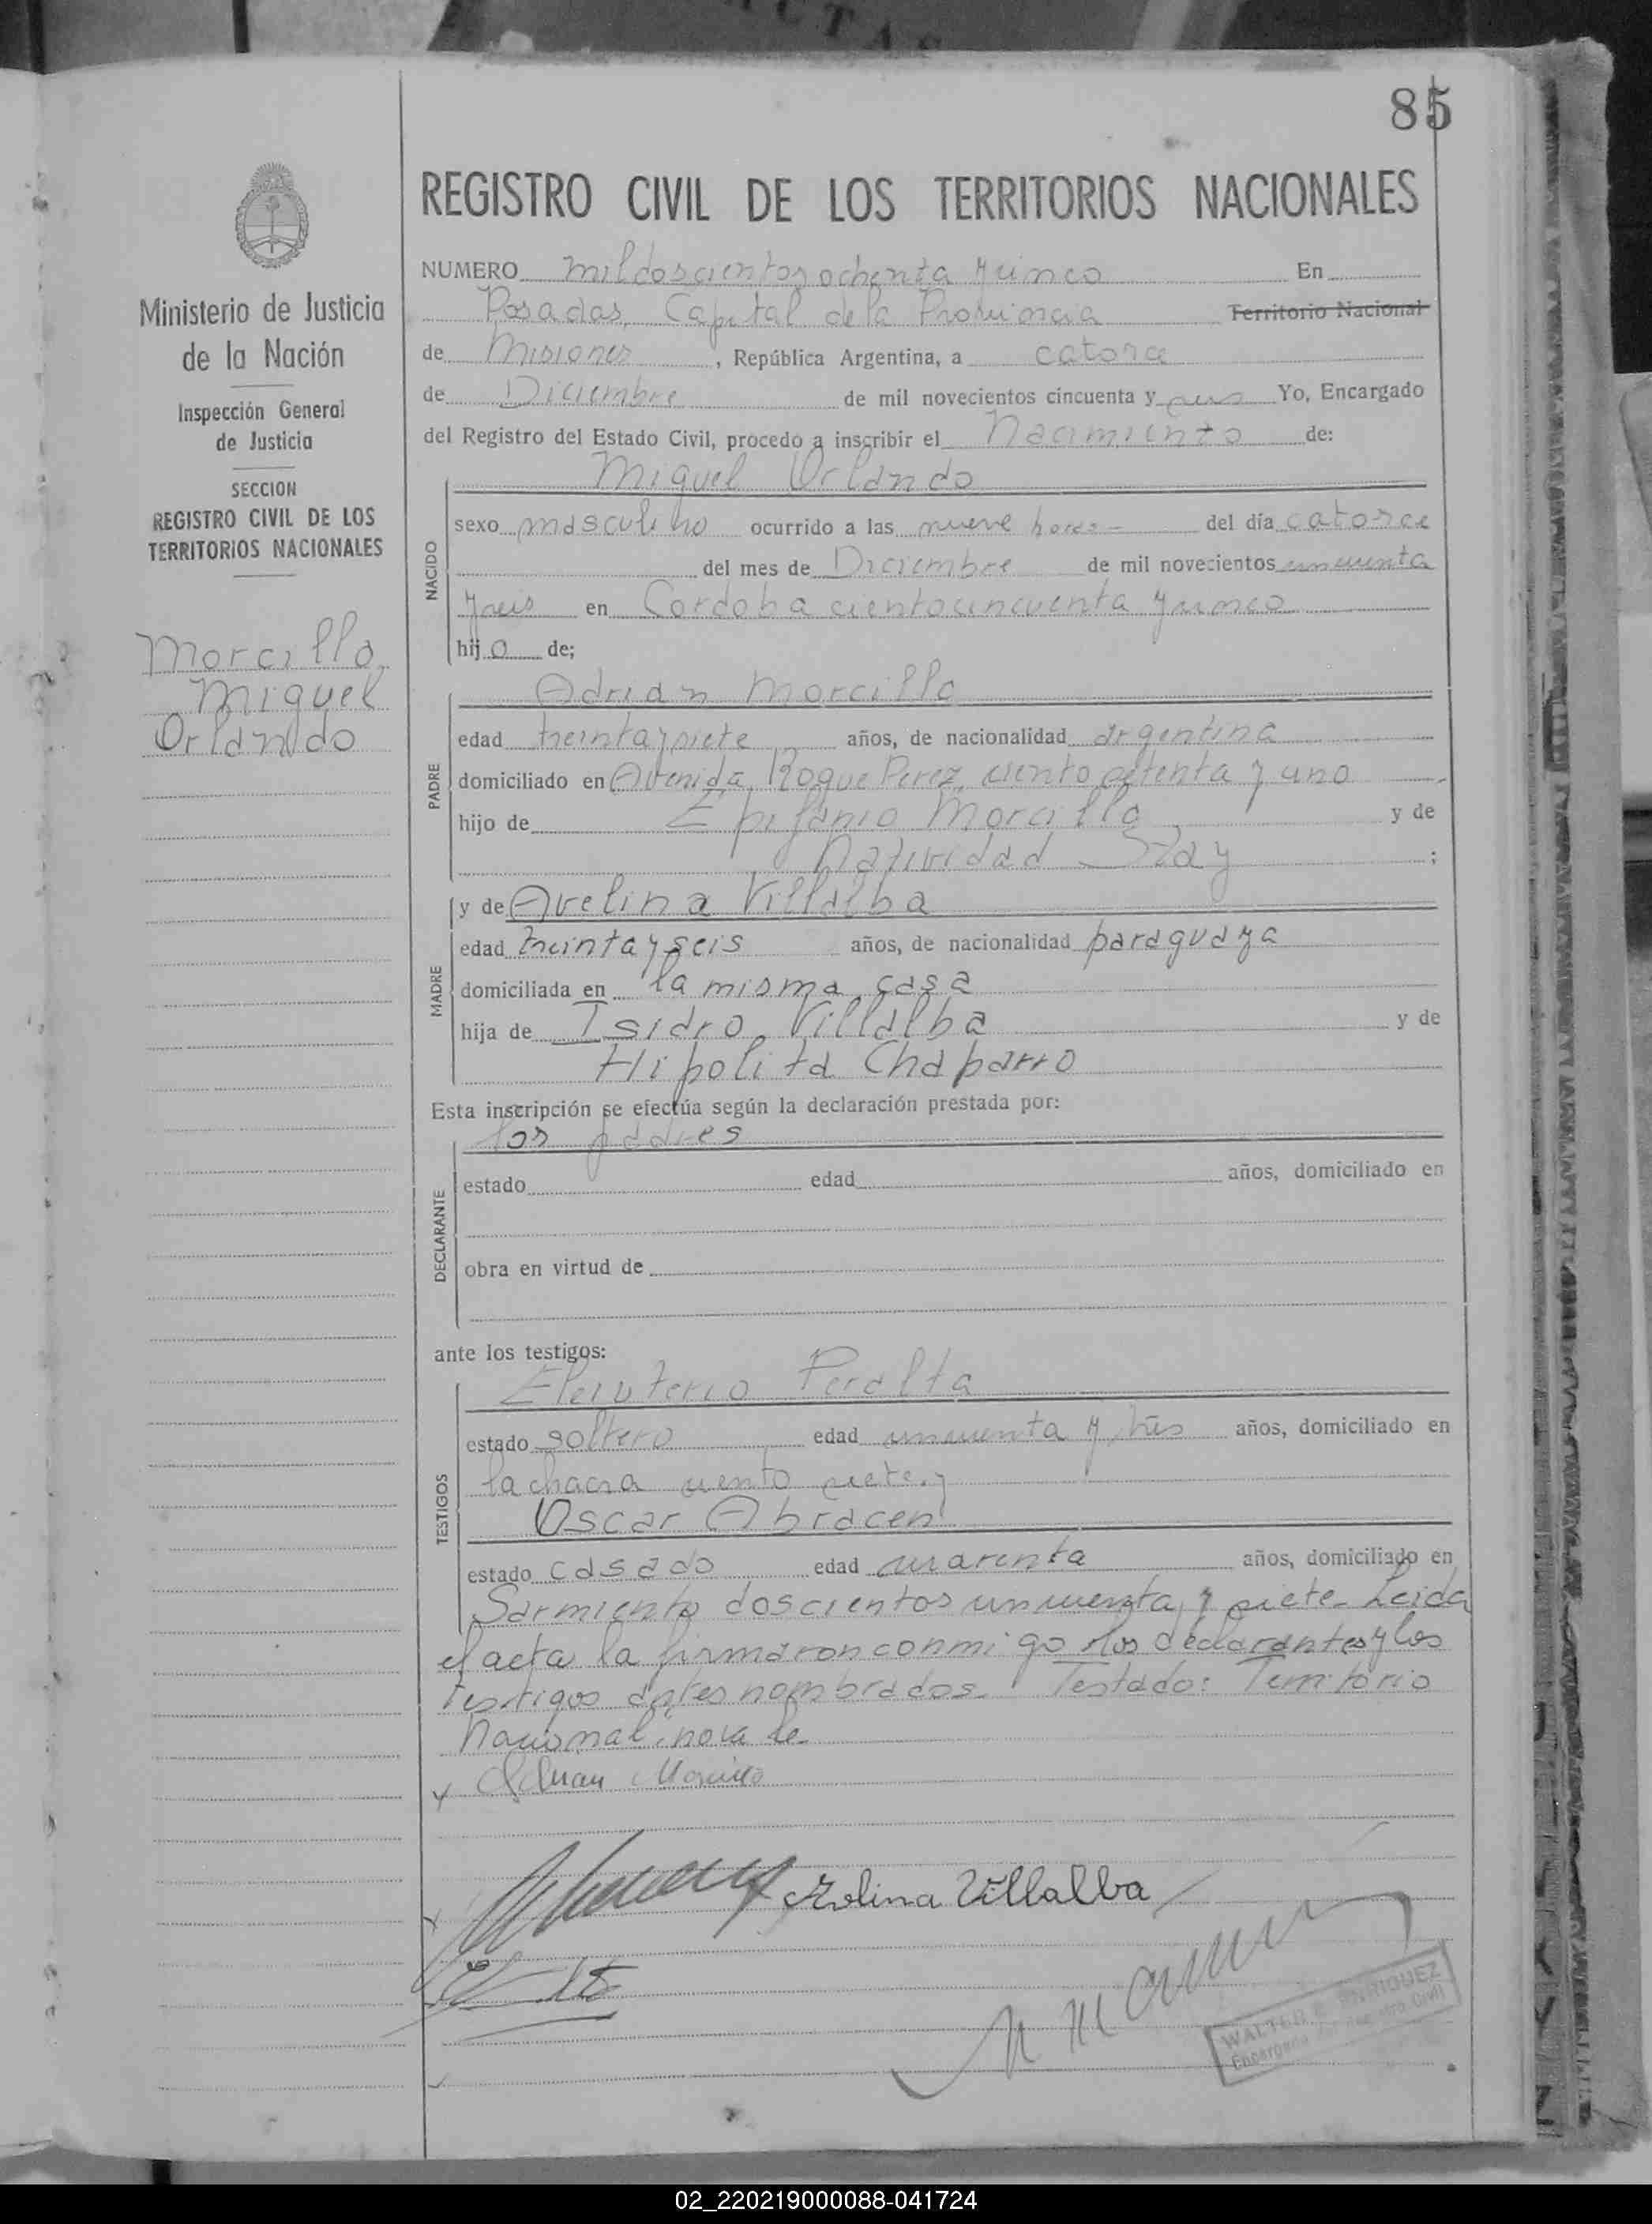 85
REGISTRO CIVIL DE LOS TERRITORIOS NACIONALES
Ministerio de Justicia
de la Nación
Inspección General
de Justicia
SECCION
REGISTRO CIVIL DE LOS
TERRITORIOS NACIONALES
Morcillo
Miguel
Orlando
NUMERO mil doscientos ochenta y cinco En
Posadas, Capital de la Provincia Territorio Nacional
de Misiones, República Argentina, a catorce
de Diciembre de mil novecientos cincuenta y seis Yo, Encargado
del Registro del Estado Civil, procedo a inscribir el Nacimiento de:
NACIDO
Miguel Orlando
sexo masculino ocurrido a las nueve horas- del día catorce
del mes de Diciembre de mil novecientos cincuenta
y seis en Cordoba ciento cincuenta y cinco
hijo de;
PADRE
Adrian Morcillo
edad treinta y siete años, de nacionalidad argentina
domiciliado en Avenida Roque Perez ciento setenta y uno
hijo de Epifanio Morcillo y de
Natividad ;
MADRE
y de Avelina Villalba
edad treinta y seis años, de nacionalidad paraguaya
domiciliada en la misma casa
hija de Isidro Villalba y de
Hipolita Chaparro
Esta inscripción se efectúa según la declaración prestada por:
DECLARANTE
los padres
estado edad años, domiciliado en
obra en virtud de
ante los testigos:
TESTIGOS
Eleuterio Peralta
estado soltero edad cincuenta y tres años, domiciliado en
la chacra ciento siete. y
Oscar Abracen
estado casado edad cuarenta años, domiciliado en
Sarmiento doscientos cincuenta y siete- Leida
el acta la firmaron conmigo los declarantes y los
testigos antes nombrados- Testado: Territorio
Nacional: no vale-
Adrian Morcillo
Avelina Villalba
WALTER E. ENRIQUEZ
Encargado del Registro Civil
02_220219000088-041724